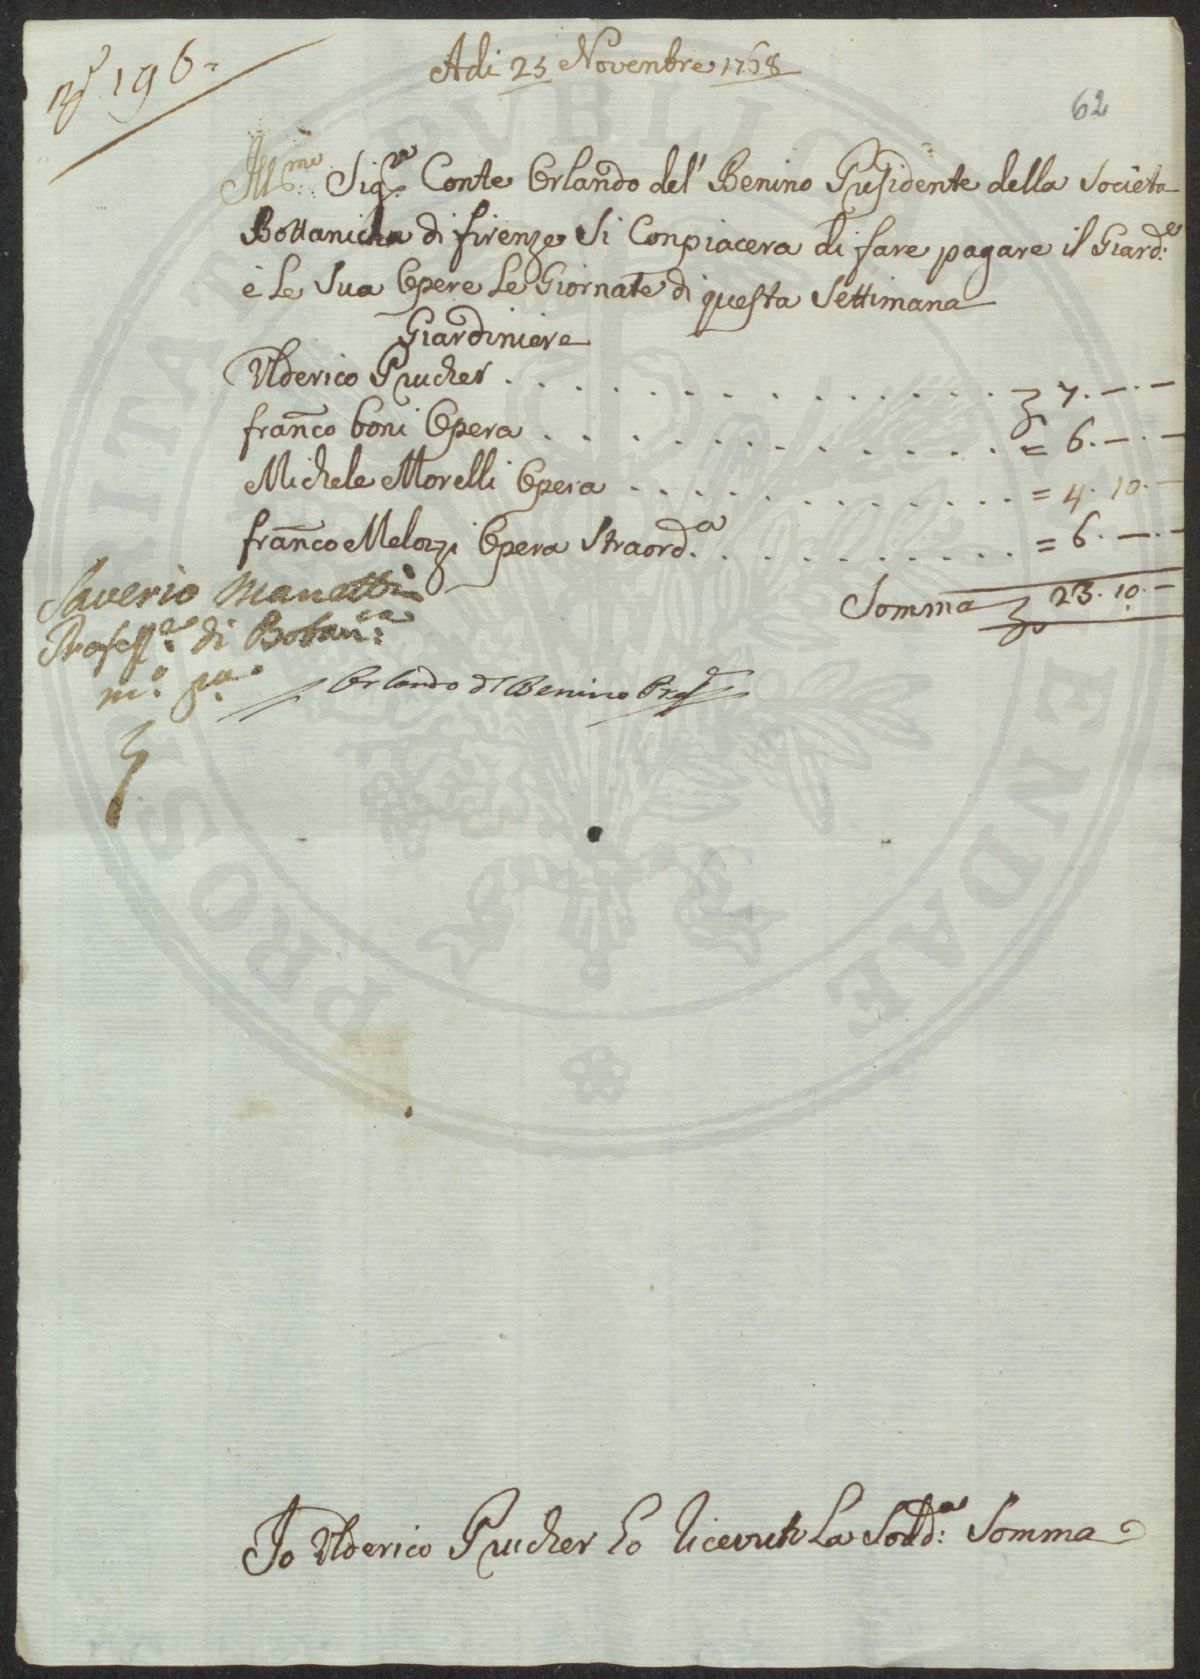 N.° 196
Adi 25 Novenbre 1768
62
Ill.mo Sig.re Conte Orlando del' Benino Presidente della Società
Bottanicha di firenze Si Conpiacera di fare pagare il Giard:e
è Le Sua Opere Le Giornate di questa Settimana
Giardiniere
Ulderico Prucher . . . . . . . . . . . . . . 7.—.—
franco boni Opera . . . . . . . . . . . . = 6.—.—
Michele Morelli Opera . . . . . . . . . . = 4. 10.—
franco Melozzi Opera Straord.a . . . . . . . . = 6.—.—
Somma 23. 10.—
Saverio Manetti
Profess.re di Botan:ca
m.o p.a
Orlando dl Benino Pres.e
Io Ulderico Prucher ho Riceuto La Sodd:a Somma
PROSPERITATI PUBLICAE AUGENDAE